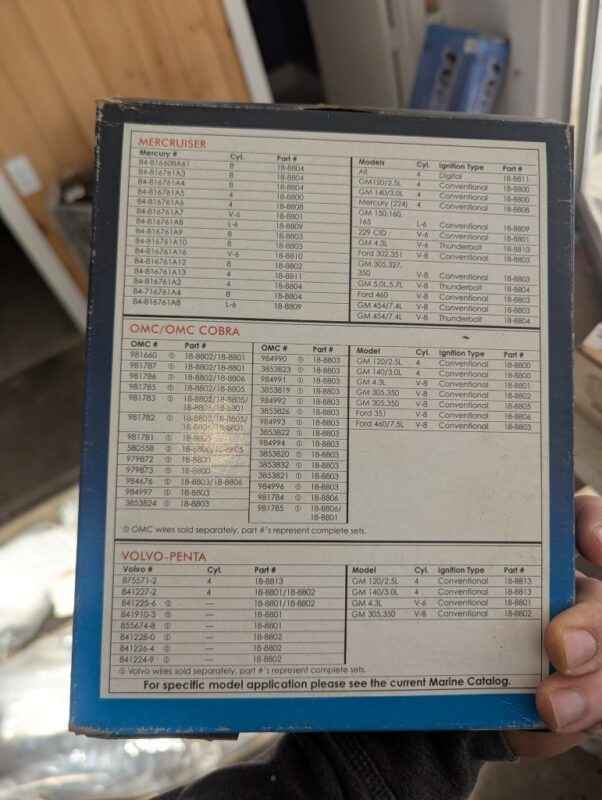 MERCRUISER
Mercury # Cyl. Part #
84-816608A61 8 18-8804
84-816761A3 8 18-8804
84-816761A4 8 18-8804
84-816761A5 4 18-8800
84-816761A6 4 18-8808
84-816761A7 V-6 18-8801
84-816761A8 L-6 18-8809
84-816761A9 8 18-8803
84-816761A10 8 18-8803
84-816761A16 V-6 18-8810
84-816761A12 8 18-8802
84-816761A13 4 18-8811
84-816761A2 4 18-8804
84-716761A4 8 18-8804
84-816761A8 L-6 18-8809
Models Cyl. Ignition Type Part #
All 4 Digital 18-8811
GM120/2.5L 4 Conventional 18-8800
GM 140/3.0L 4 Conventional 18-8800
Mercury (224) 4 Conventional 18-8808
GM 150,160,
165 L-6 Conventional 18-8809
229 CID V-6 Conventional 18-8801
GM 4.3L V-6 Thunderbolt 18-8810
Ford 302,351 V-8 Conventional 18-8803
GM 305,327,
350 V-8 Conventional 18-8803
GM 5.0L,5.7L V-8 Thunderbolt 18-8804
Ford 460 V-8 Conventional 18-8803
GM 454/7.4L V-8 Conventional 18-8803
GM 454/7.4L V-8 Thunderbolt 18-8804
OMC/OMC COBRA
OMC # Part #
981660 ① 18-8802/18-8801
981787 ① 18-8802/18-8801
981786 ① 18-8802/18-8806
981785 ① 18-8802/18-8805
981783 ① 18-8802/18-8805/
18-8806/18-8801
981782 ① 18-8802/18-8805/
18-8806/18-8801
981781 ① 18-8805
580558 ① 18-8806/18-8805
979872 ① 18-8801
979873 ① 18-8800
984676 ① 18-8803/18-8806
984997 ① 18-8803
3853824 ① 18-8803
OMC # Part #
984990 ① 18-8803
3853823 ① 18-8803
984991 ① 18-8803
3853819 ① 18-8803
984992 ① 18-8803
3853826 ① 18-8803
984993 ① 18-8803
3853822 ① 18-8803
984994 ① 18-8803
3853820 ① 18-8803
3853832 ① 18-8803
3853821 ① 18-8803
984996 ① 18-8803
981784 ① 18-8806
981785 ① 18-8806/
18-8801
Model Cyl. Ignition Type Part #
GM 120/2.5L 4 Conventional 18-8800
GM 140/3.0L 4 Conventional 18-8800
GM 4.3L V-8 Conventional 18-8801
GM 305,350 V-8 Conventional 18-8802
GM 305,350 V-8 Conventional 18-8805
Ford 351 V-8 Conventional 18-8806
Ford 460/7.5L V-8 Conventional 18-8803
① OMC wires sold separately, part #'s represent complete sets.
VOLVO-PENTA
Volvo # Cyl. Part #
875571-2 4 18-8813
841227-2 4 18-8801/18-8802
841225-6 ① --- 18-8801/18-8802
841910-3 ① --- 18-8801
855674-8 ① --- 18-8801
841228-0 ① --- 18-8802
841226-4 ① --- 18-8802
841224-9 ① --- 18-8802
Model Cyl. Ignition Type Part #
GM 120/2.5L 4 Conventional 18-8813
GM 140/3.0L 4 Conventional 18-8813
GM 4.3L V-6 Conventional 18-8801
GM 305,350 V-8 Conventional 18-8802
① Volvo wires sold separately, part #'s represent complete sets.
For specific model application please see the current Marine Catalog.